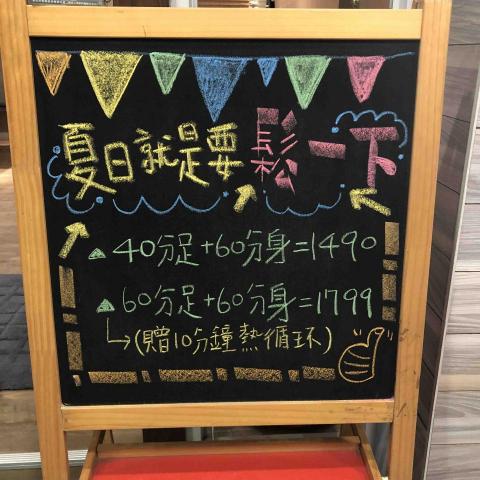 夏日就是要鬆一下
▲40分足+60分身=1490
▲60分足+60分身=1799
↳(贈10分鐘熱循环)